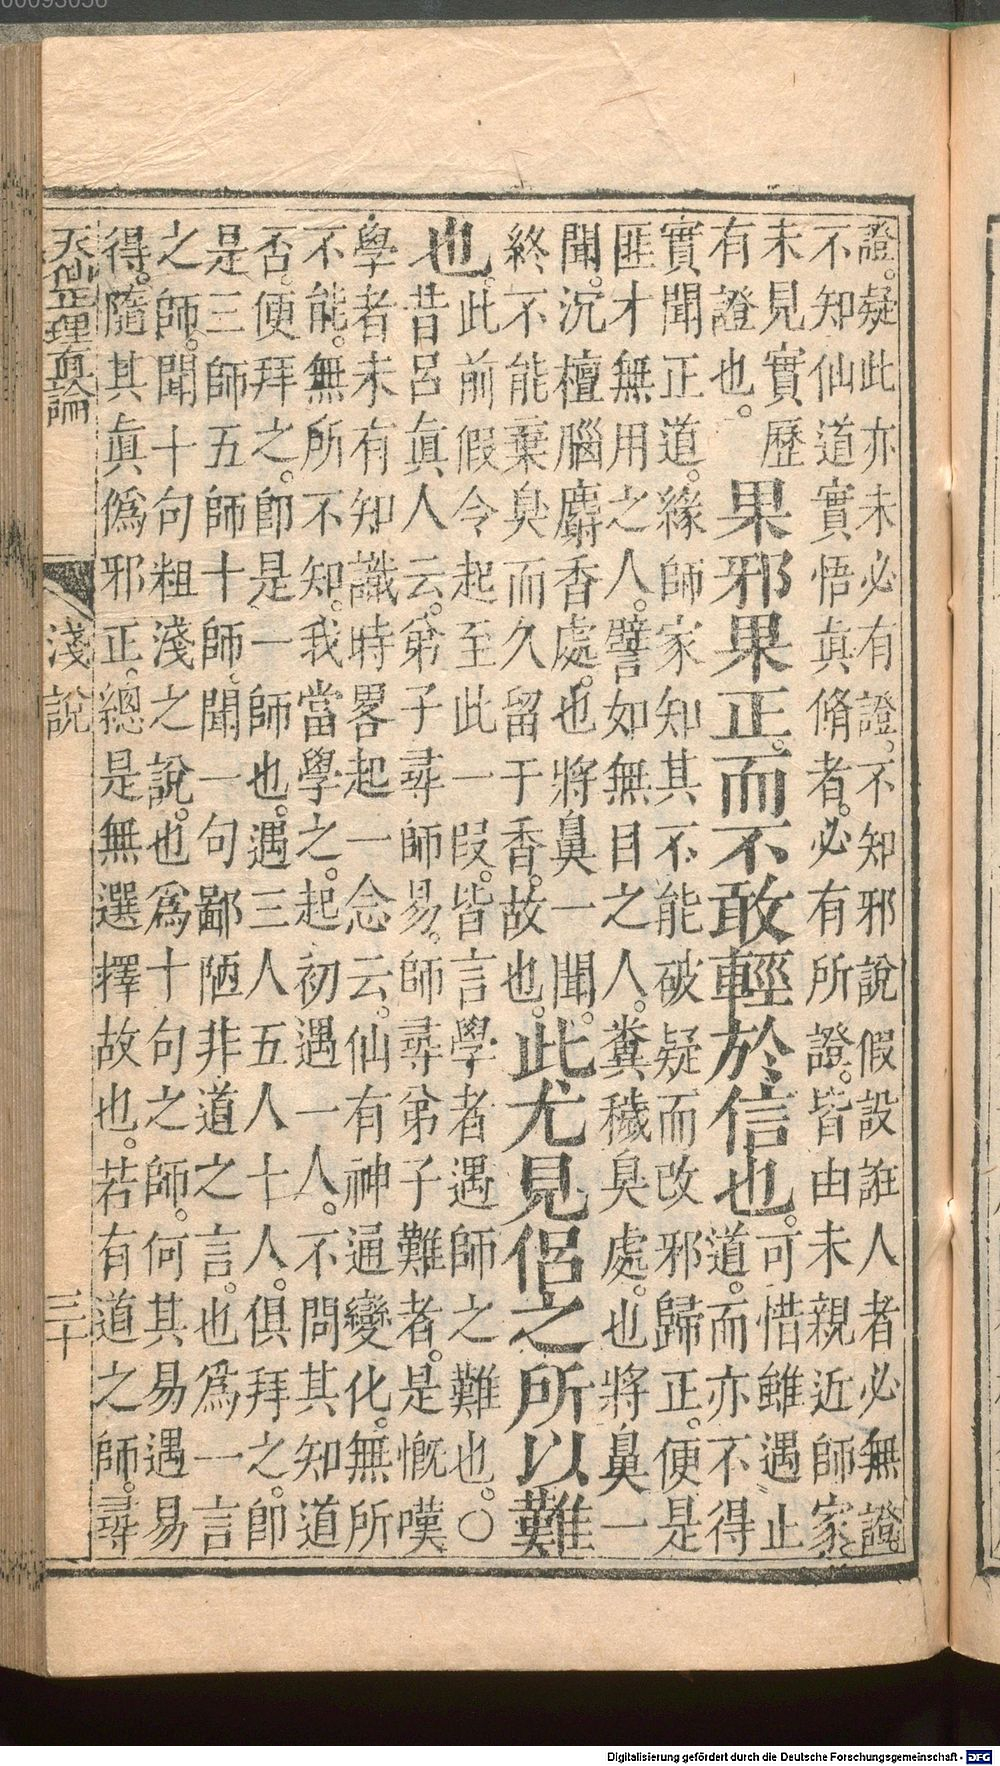 證。疑此亦未必有證。不知邪說假設誑人者必無證。
不知仙道實悟真脩者。必有所證。皆由未親近師家。
未見實歷
有證也。
果邪果正。而不敢輕於信也。
可惜雖遇止
道。而亦不得
實聞正道。緣師家知其不能破疑而改邪歸正。便是
匪才無用之人。譬如無目之人。糞穢臭處。也將鼻一
聞。沉檀腦麝香處。也將鼻一聞。
終不能棄臭而久留于香。故也。
此尤見侶之所以難
也。
此前假令起至此一叚。皆言學者遇師之難也。〇
昔呂眞人云。弟子尋師易。師尋弟子難者。是慨嘆
學者未有知識時畧起一念云。仙有神通變化。無所
不能。無所不知。我當學之。起初遇一人。不問其知道
否。便拜之。卽是一師也。遇三人五人十人。俱拜之。卽
是三師五師十師。聞一句鄙陋非道之言。也爲一言
之師。聞十句粗淺之說。也爲十句之師。何其易遇易
得。隨其眞僞邪正。總是無選擇故也。若有道之師。尋
天仙正理直論 淺說 三十
Digitalisierung gefördert durch die Deutsche Forschungsgemeinschaft - DFG